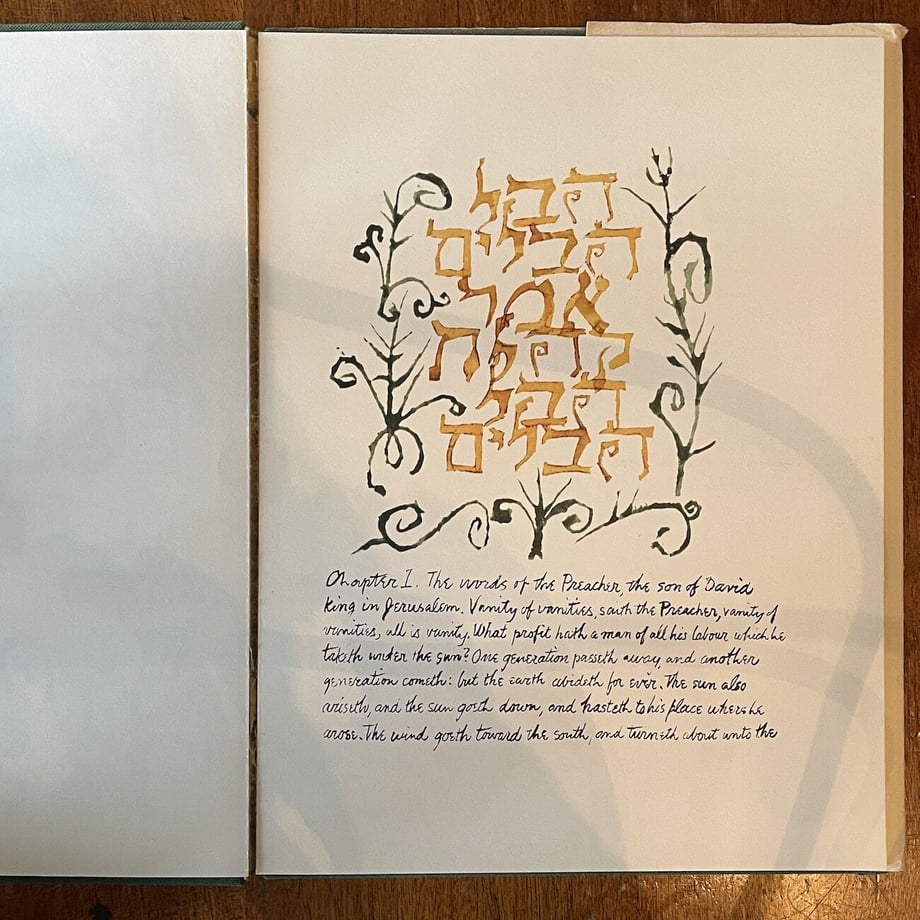 הבל
הבלים
אמר
קהלת
הבל
הבלים
Chapter I. The words of the Preacher, the son of David
King in Jerusalem. Vanity of vanities, saith the Preacher, vanity of
vanities, all is vanity. What profit hath a man of all his labour which he
taketh under the sun? One generation passeth away, and another
generation cometh: but the earth abideth for ever. The sun also
ariseth, and the sun goeth down, and hasteth to his place where he
arose. The wind goeth toward the south, and turneth about unto the